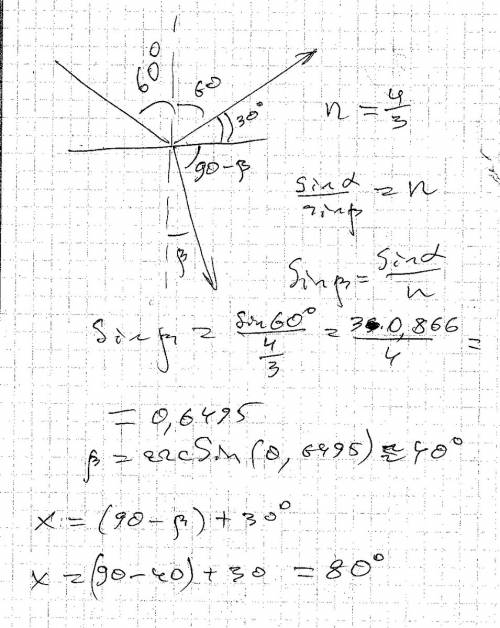 60°
60
30°
90-β
β
n = 4/3
sinα/sinβ = n
Sinβ = Sinα/n
Sinβ = Sin60°/(4/3) = 3·0,866/4 =
= 0,6495
β = arcSin(0,6495) ≈ 40°
x = (90-β) + 30°
x = (90-40) + 30 = 80°